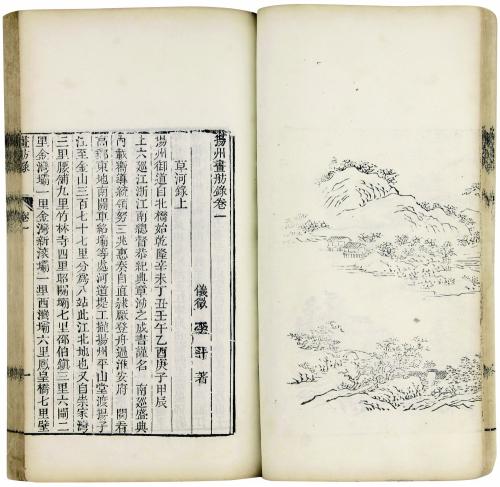 揚州畫舫錄卷一
儀徵 李斗 著
草河錄上
揚州御道自北橋始乾隆辛未丁丑壬午乙酉庚子甲辰
上六巡江浙江南總督恭紀典章泐之成書謹名 南巡盛典
內載嚮導統領努三兆惠奏自直隸廠登舟過淮安府 閱看
高郵東地南關車絡壩等處河道堤工攏揚州平山堂渡揚子
江至金山三百七十七里分爲八站此江北地也又自崇家灣
三里腰鋪九里竹林寺四里昭關壩七里邵伯鎮三里六閘二
里金灣壩一里金灣新滾壩一里西灣壩六里鳳皇橋七里壁